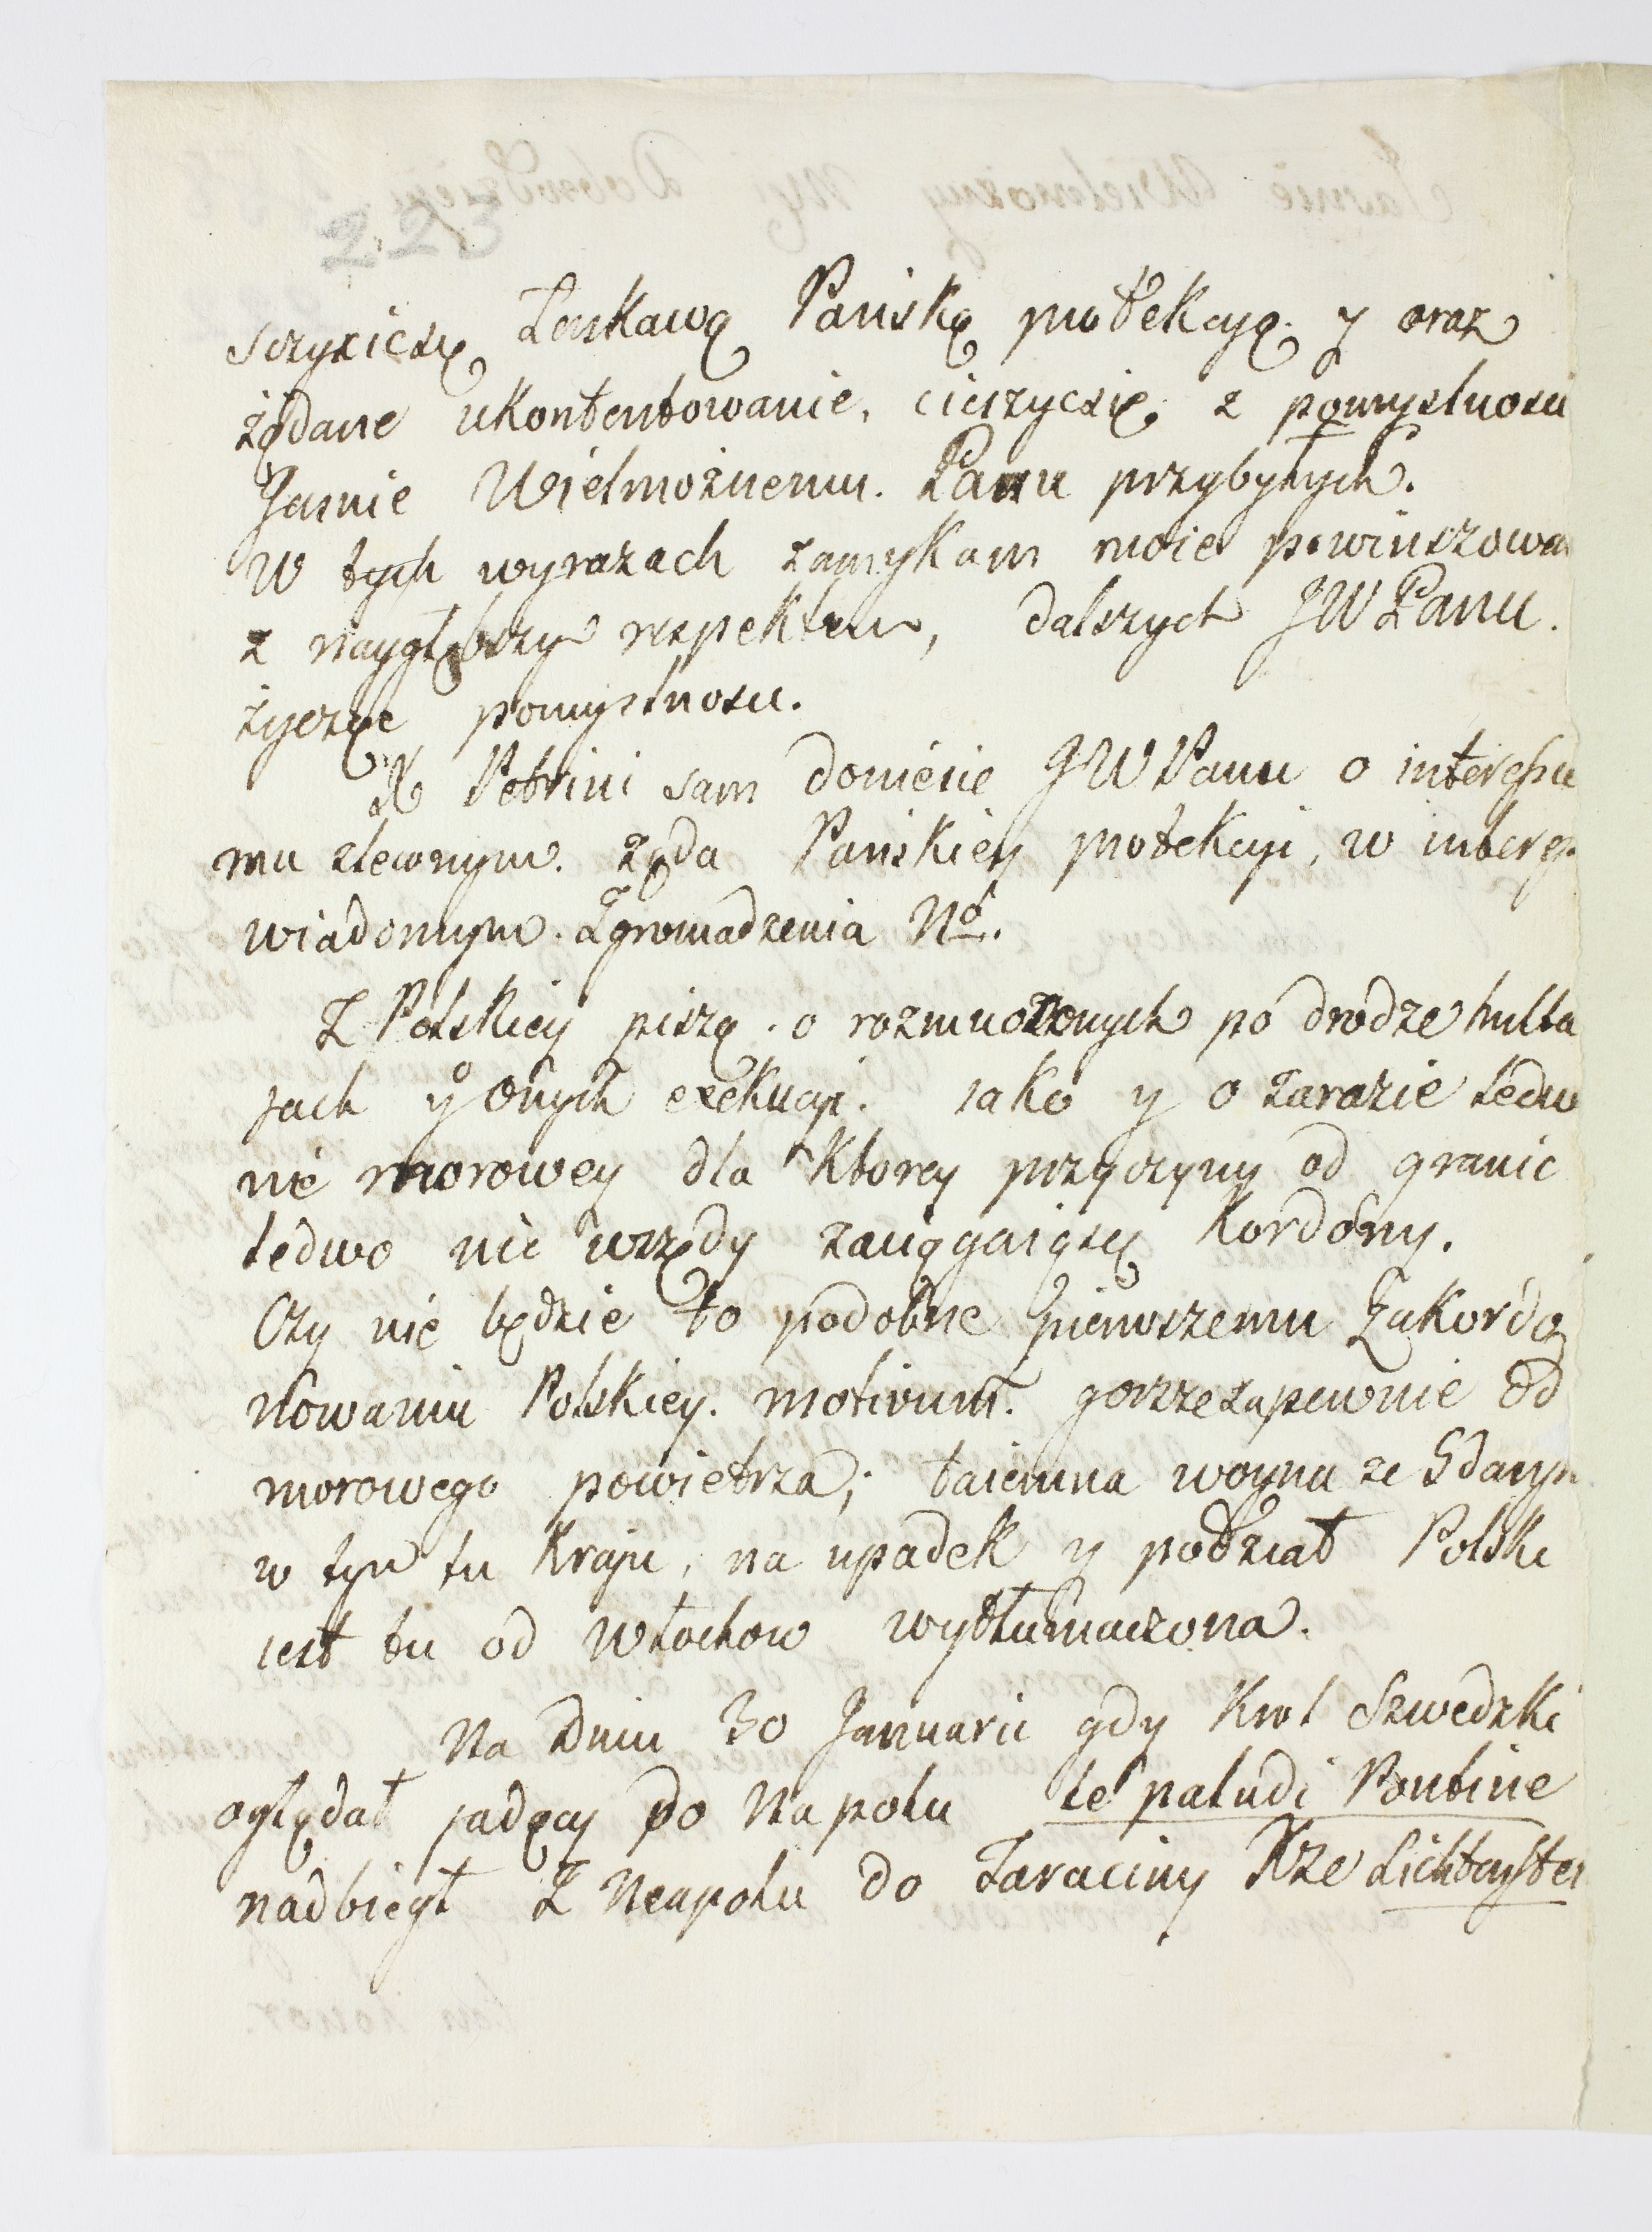 223
sczyciesię Łaskawą Pańską protekcyą y oraz
żądane ukontentowanie, cieszycsię z pomyslnosci
Jasnie Wielmożnemu Panu przybyłych.
W tych wyrazach zamykam moie powinszowa
z naygłębszym respektem, dalszych JWPanu
życząc pomyslnosci.
X Petrini sam doniesie JWPanu o interessie
mu zlewnym. żąda Pańskiey protekcyi, w interes.
wiadomym Zgromadzenia Nō.
Z Polskiey piszą o rozmnożonych po drodze hulta
jach y o onych exekucyi. iako y o zarazie ledw
nie morowey dla Ktorey przyczyny od granic
ledwo nie wszędy zaciągaiąsię Kordony.
Czy nie będzie to podobne pierwszemu Zakordo
nowaniu Polskiey motivum. gorszezapewnie od
morowego powietrza; taiemna woyna ze Gdany
w tym tu Kraju, na upadek y podział Polski
iest tu od Włochow wytłumaczona.
Na Dniu 30 Januarii gdy Krol Szwedzki
oglądał jadący do Napolu le paludi Pontine
nadbiegł Z Neapolu do Taraciny Xże Lichteyste